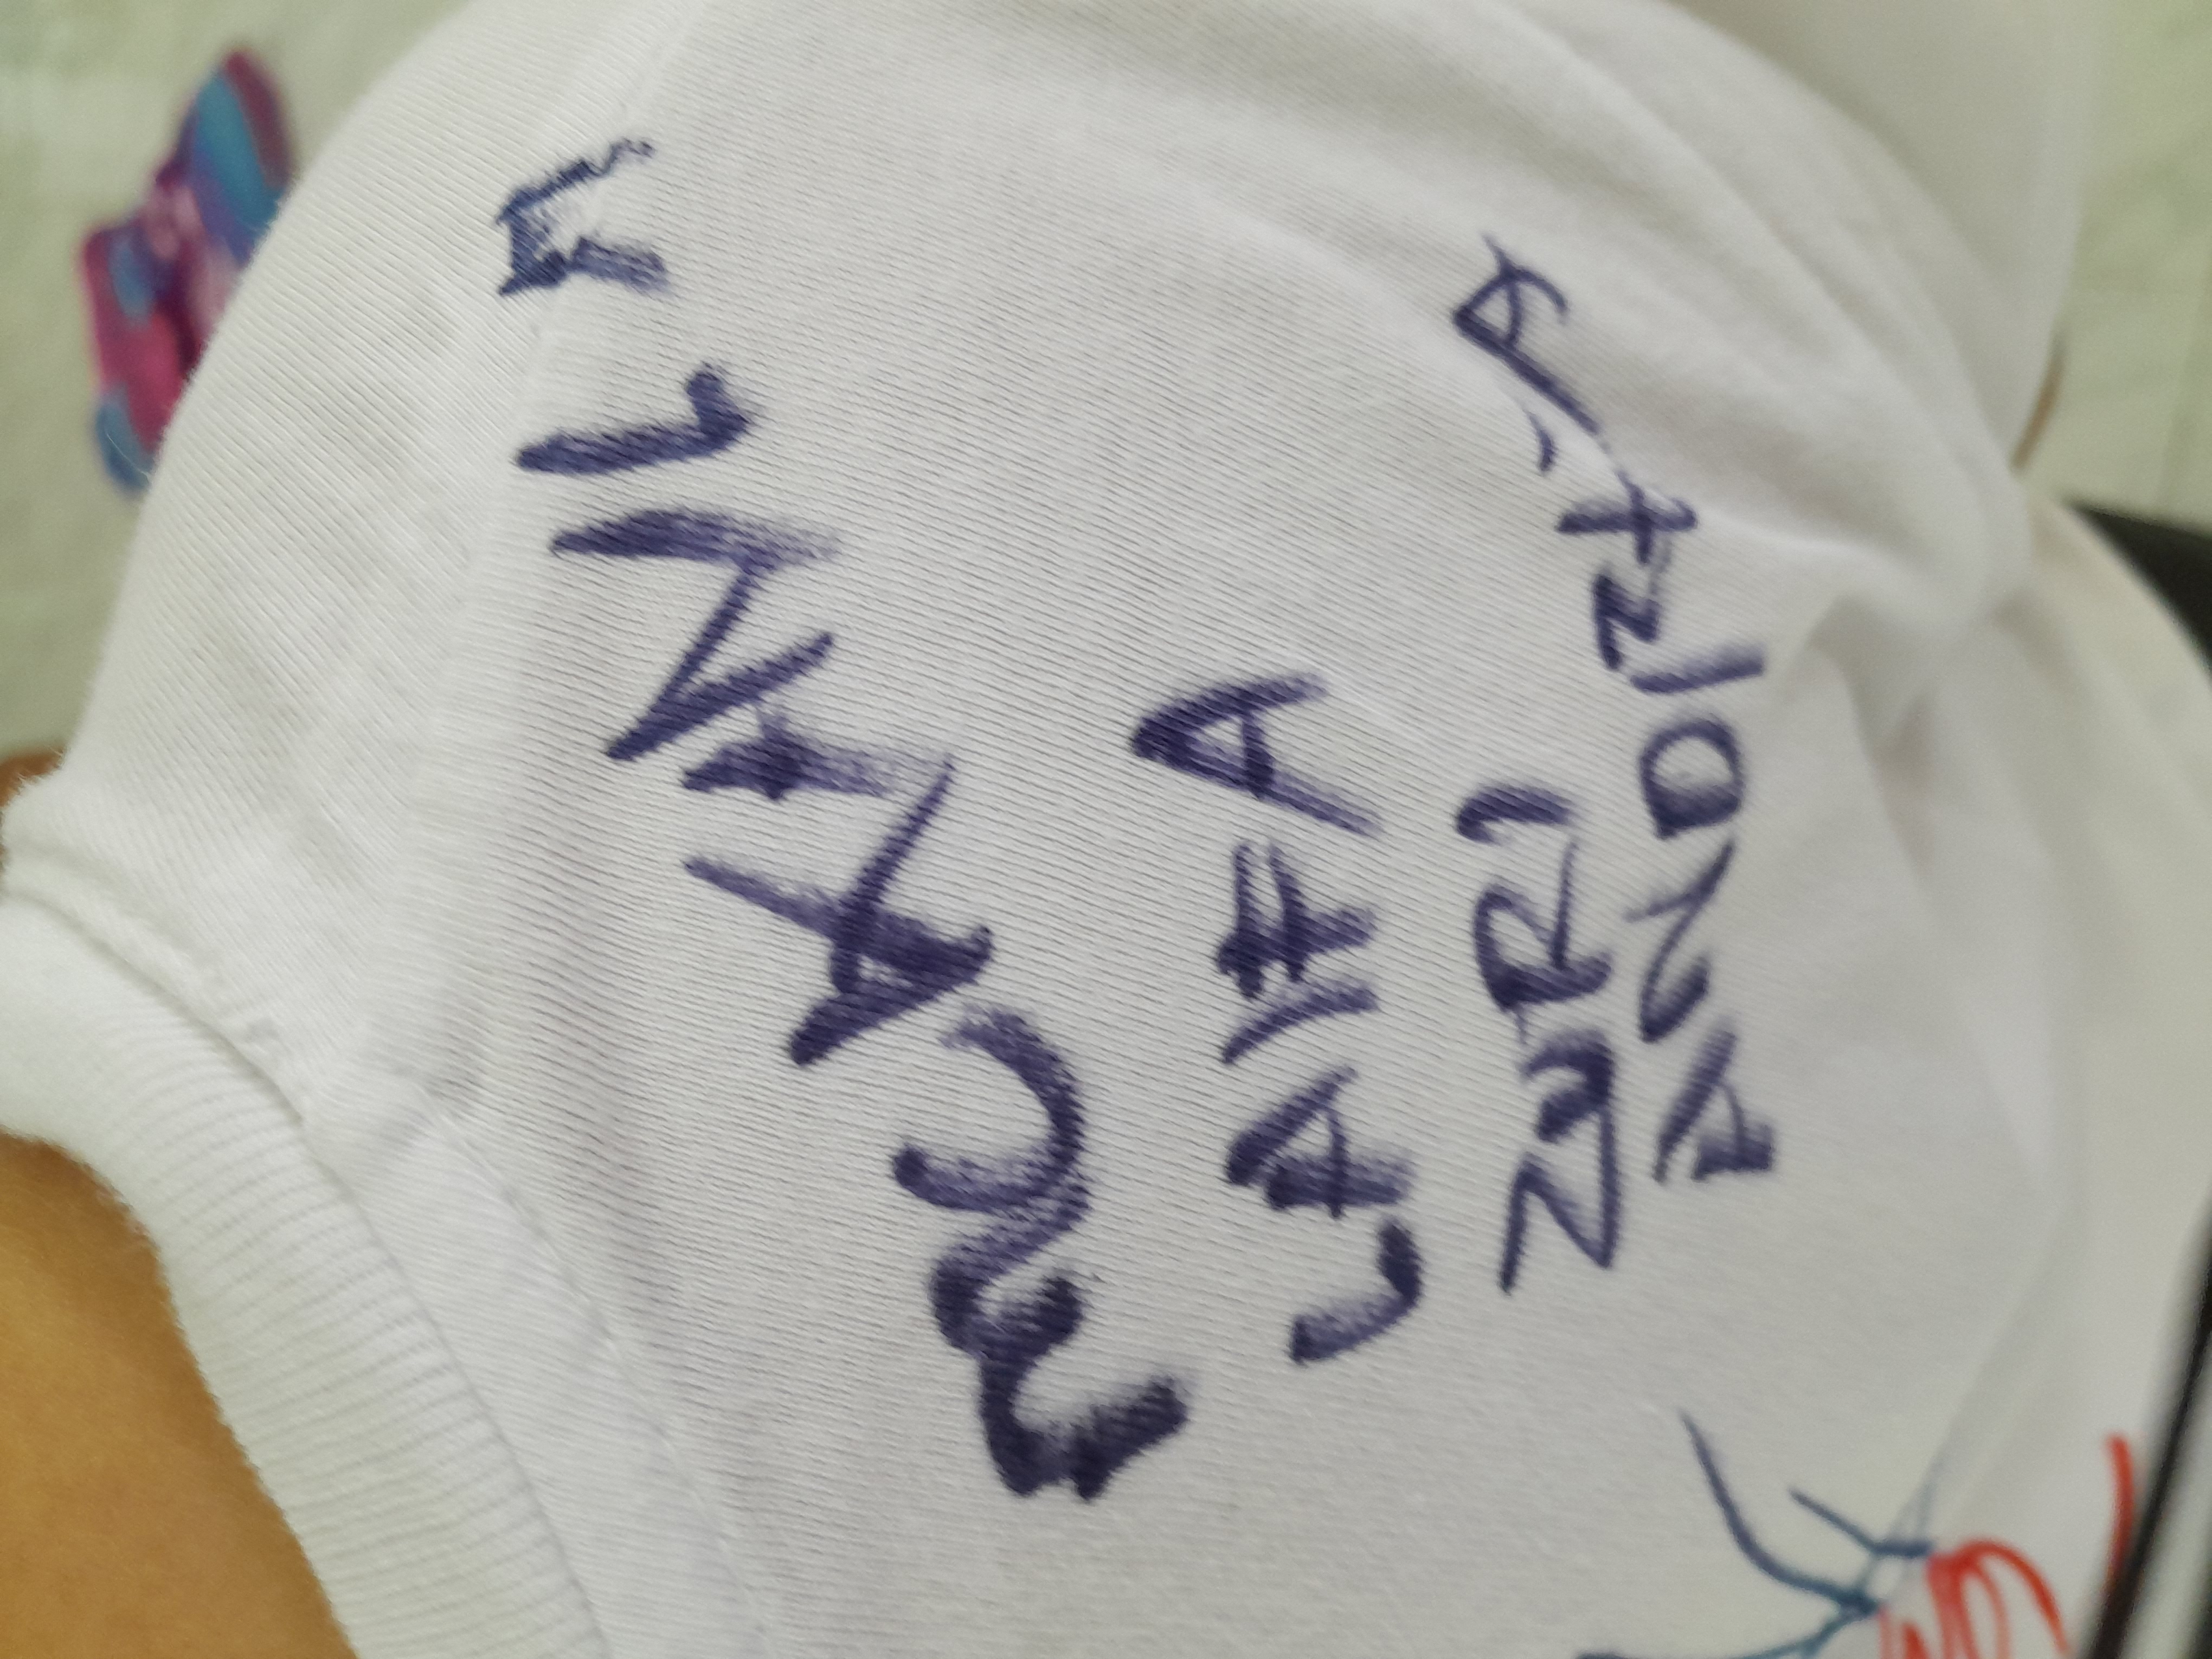 MCKANLA
LAIFA
ZURI
ANDREA